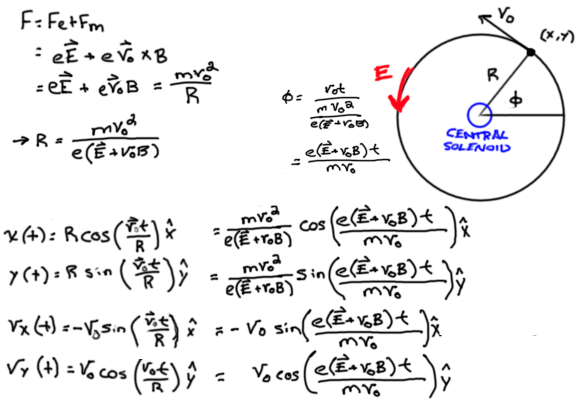 F = Fe + Fm
= eE⃗ + e v⃗₀ × B
= eE⃗ + e v⃗₀B = mv₀²/R
→ R = mv₀²/e(E⃗+v₀B)
φ = v₀t/(mv₀²/e(E⃗+v₀B))
= e(E⃗+v₀B)t/mv₀
E
v₀
(x,y)
R
φ
CENTRAL
SOLENOID
x(t) = R cos(v⃗₀t/R) x̂ = mv₀²/e(E⃗+v₀B) cos(e(E⃗+v₀B)t/mv₀) x̂
y(t) = R sin(v⃗₀t/R) ŷ = mv₀²/e(E⃗+v₀B) sin(e(E⃗+v₀B)t/mv₀) ŷ
vx(t) = -v₀ sin(v⃗₀t/R) x̂ = -v₀ sin(e(E⃗+v₀B)t/mv₀) x̂
vy(t) = v₀ cos(v₀t/R) ŷ = v₀ cos(e(E⃗+v₀B)t/mv₀) ŷ